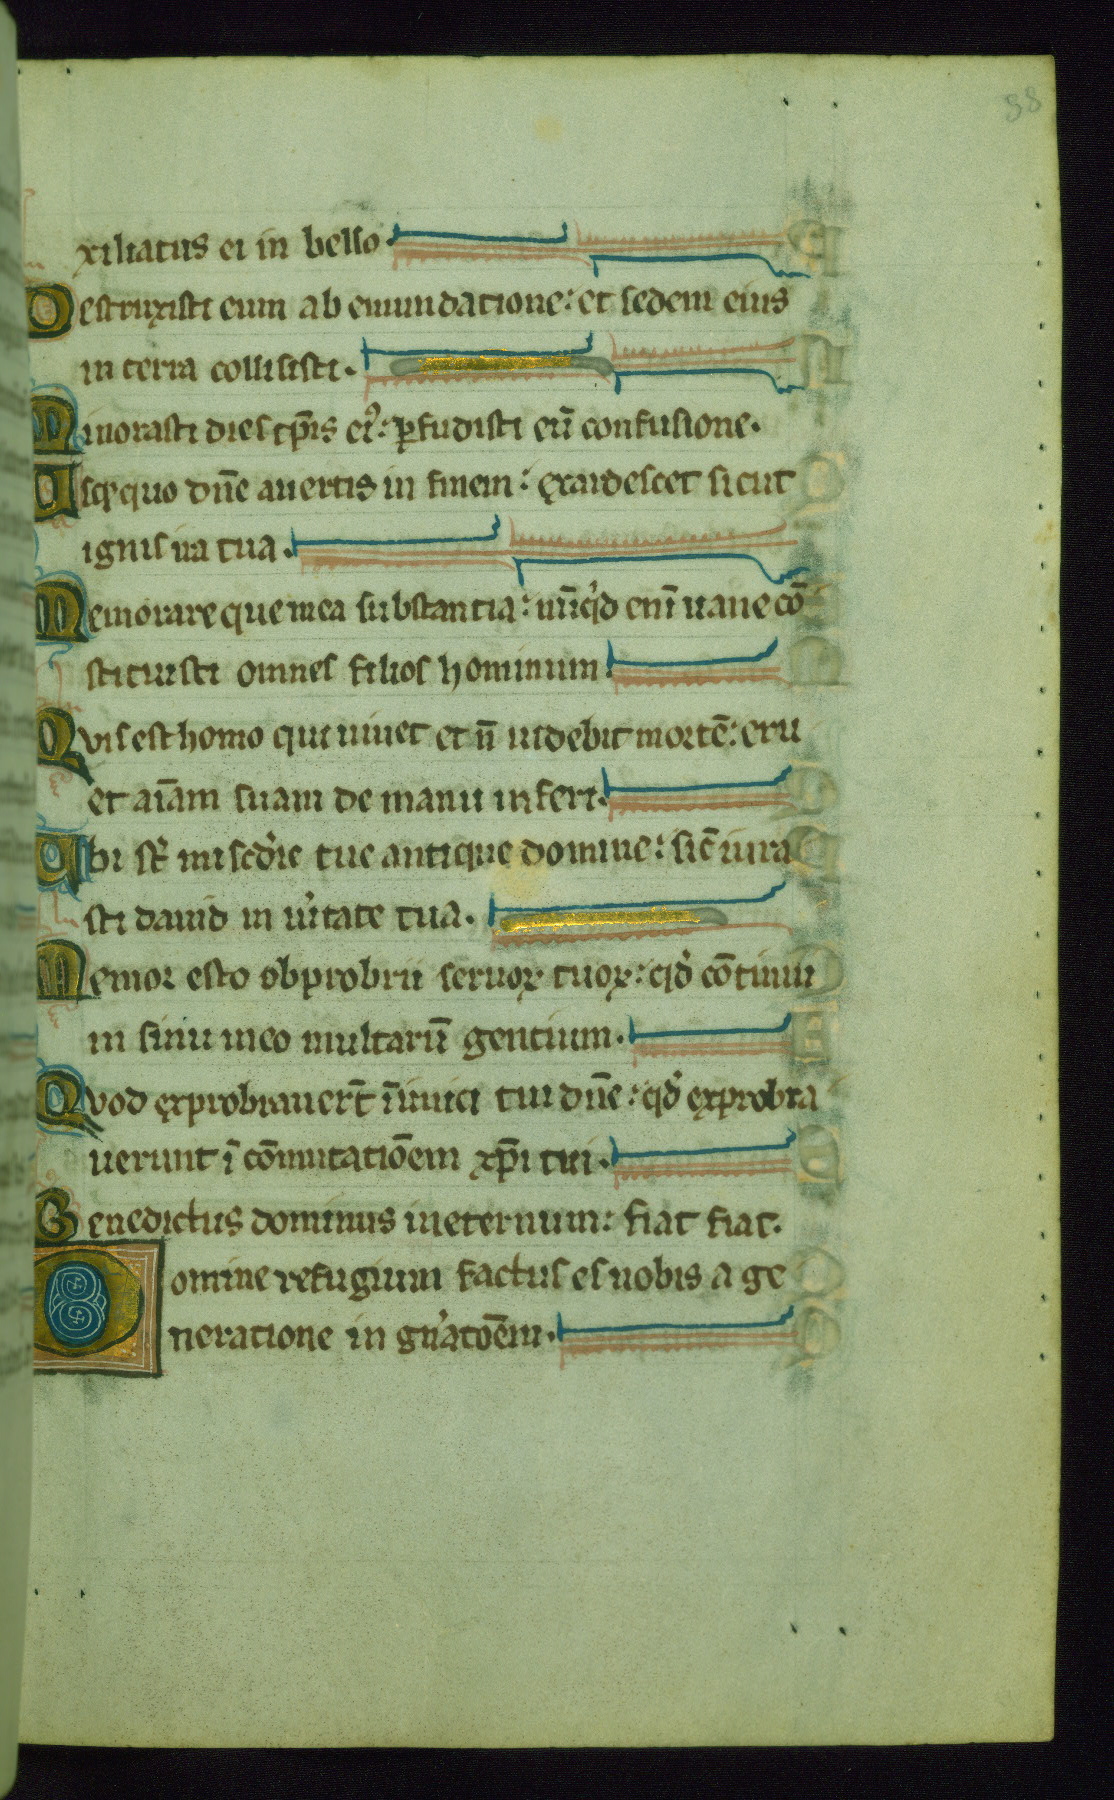 88
xiliatus ei in bello.
Destruxisti eum ab emundatione: et sedem eius
in terra collisisti.
Minorasti dies tp̄is ei᷒: ꝑfudisti eū confusione.
Usq̨quo dn̄e auertis in finem: exardescet sicut
ignis ira tua.
Memorare que mea substantia: nūq̇d eni᷒ uane cō
stituisti omnes filios hominum.
Qvis est homo qui uiuet et n̄ uidebit mortē: eru
et aīam suam de manu inferi.
Ubi st̄ mis̄c̄die tue antique domine: sic̄ iura
sti dauid in ùitate tua.
Memor esto obprobrii seruoꝝ tuoꝝ: qd̓ cōtinui
in sinu meo multarū gentium.
Qvod exprobrauer̄t īimici tui dn̄e: qd̓ exprobra
uerunt ī cōmutatiōem xp̄i tui.
Benedictus dominus ineternum: fiat fiat.
Domine refugium factus es nobis a ge
neratione in gn̓atōēm.